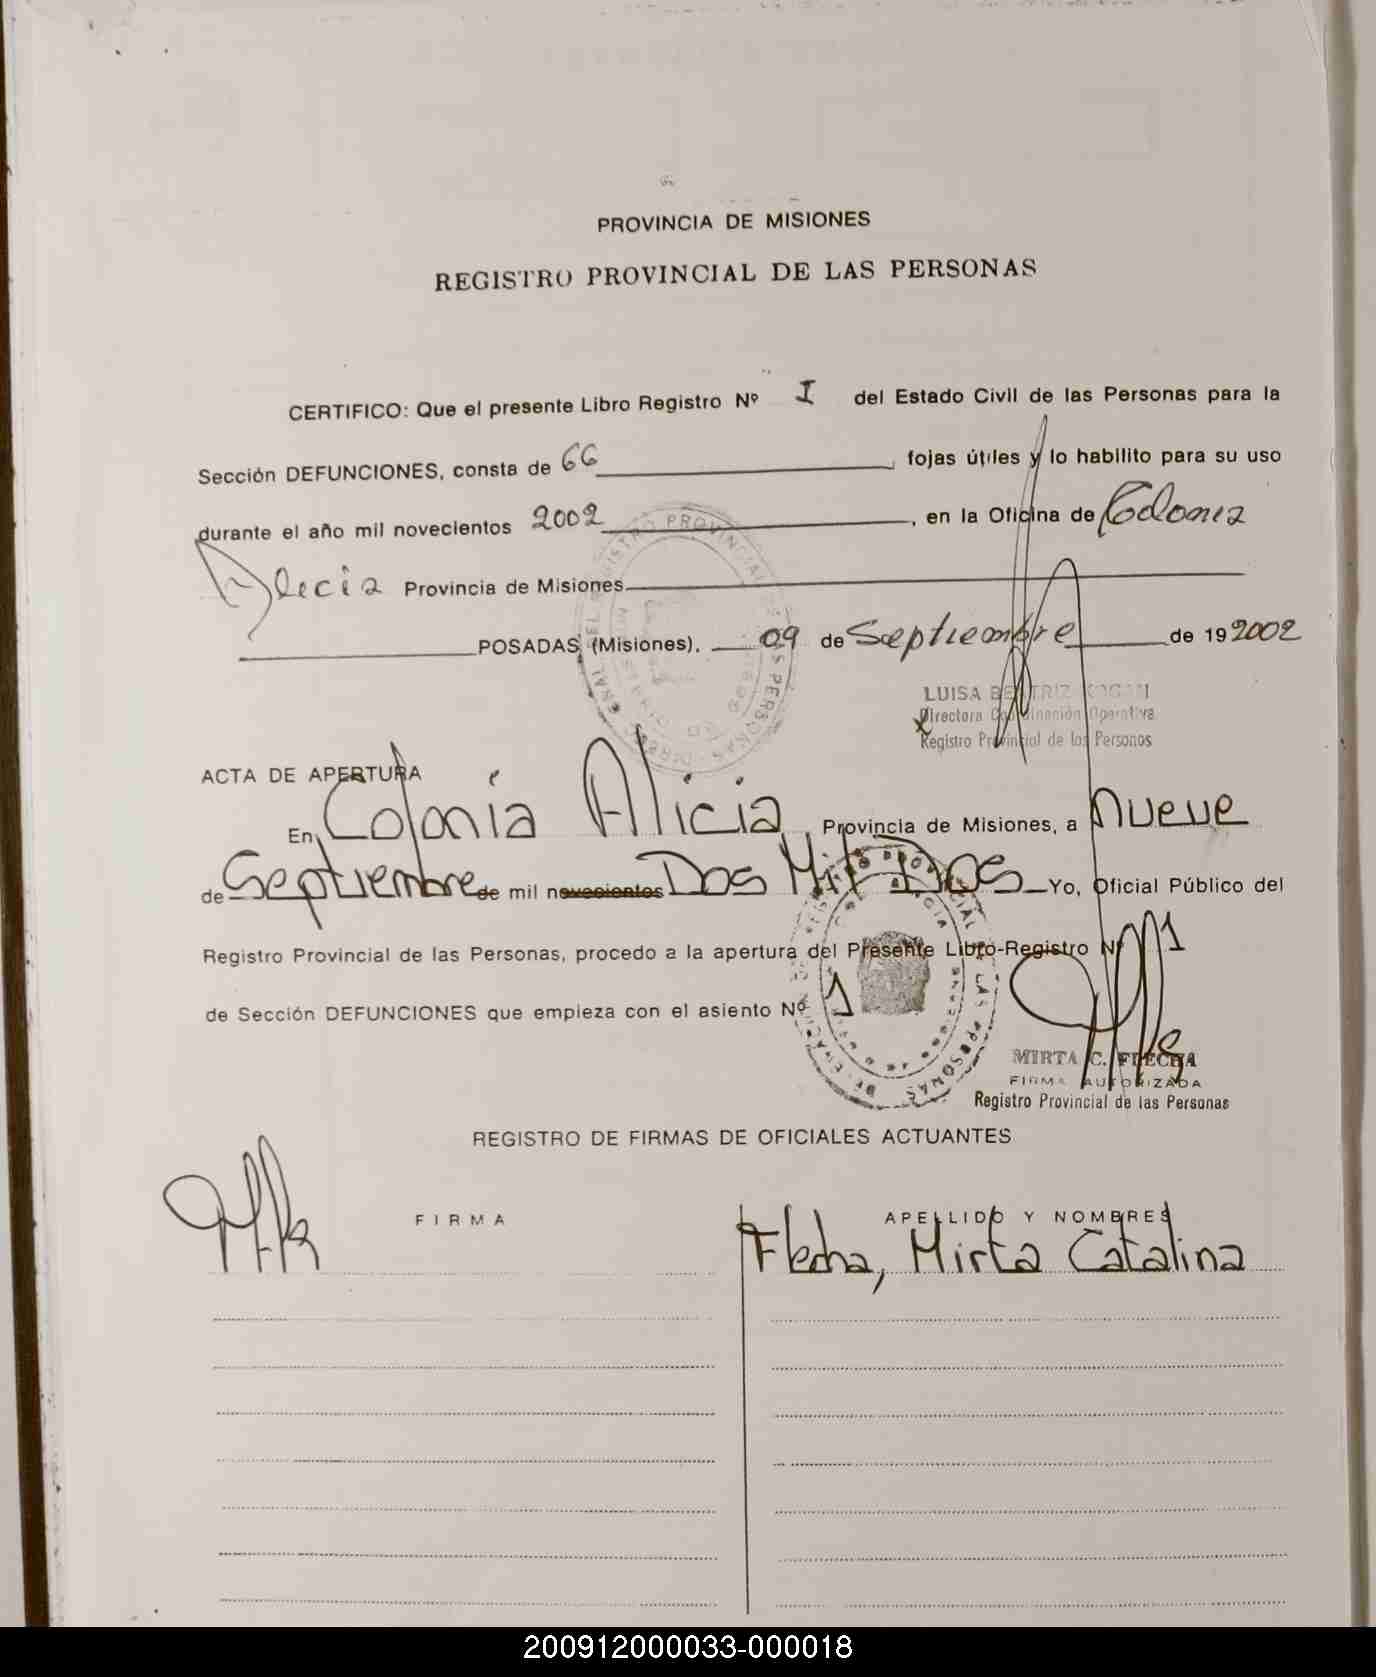 PROVINCIA DE MISIONES
REGISTRO PROVINCIAL DE LAS PERSONAS
CERTIFICO: Que el presente Libro Registro Nº I del Estado Civil de las Personas para la
Sección DEFUNCIONES, consta de 66 , fojas útiles y lo habilito para su uso
durante el año mil novecientos 2002 , en la Oficina de Colonia
Alecia Provincia de Misiones
POSADAS, (Misiones), 09 de Septiembre de 19 2002
LUISA BEATRIZ KOGAN
Directora Coordinación Operativa
Registro Provincial de las Personas
ACTA DE APERTURA
En Colonia Alicia, Provincia de Misiones, a nueve
de Septiembre de mil novecientos Dos Mil Dos Yo, Oficial Público del
Registro Provincial de las Personas, procedo a la apertura del Presente Libro-Registro Nº 1
de Sección DEFUNCIONES que empieza con el asiento Nº 1
MIRTA C. FLECHA
FIRMA AUTORIZADA
Registro Provincial de las Personas
REGISTRO DE FIRMAS DE OFICIALES ACTUANTES
FIRMA APELLIDO Y NOMBRES
Flecha, Mirta Catalina
200912000033-000018